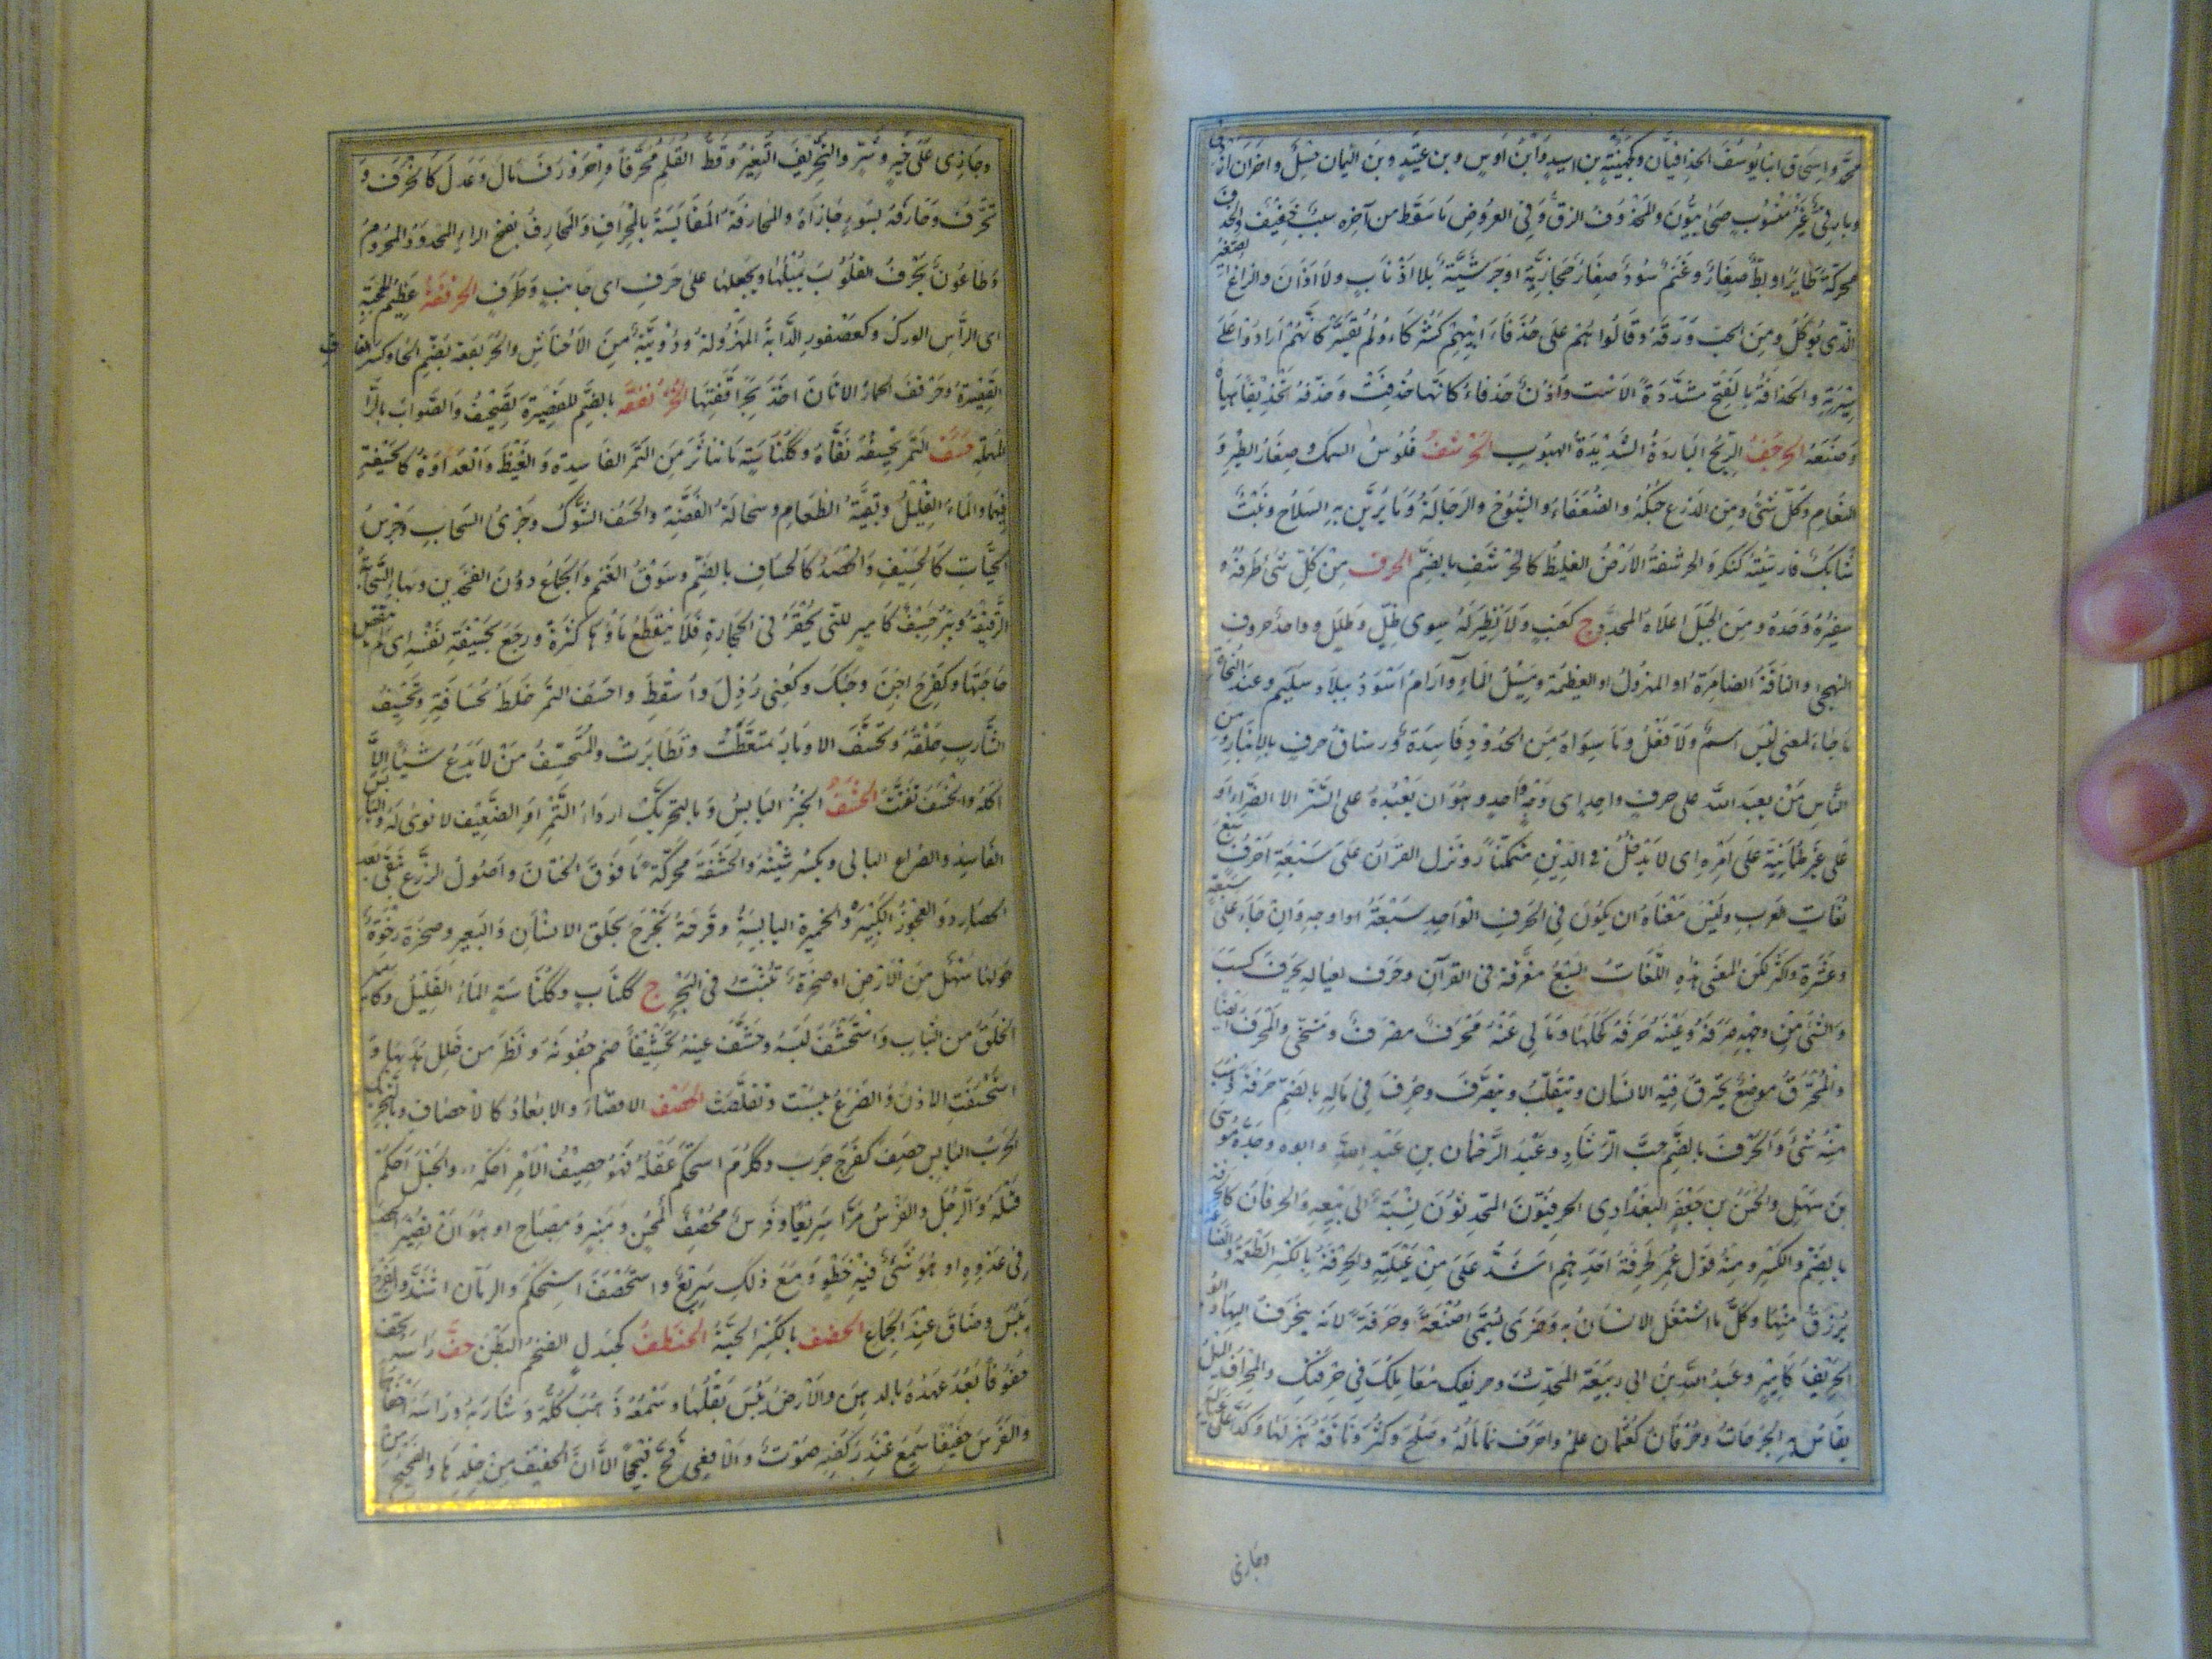 محمد واسحاق ابنا يوسف الحذافيان وكجهينة بن اسيد وابن اوس وبن عبيد وبن اليمان حسل واخران
وبارقي غير منسوب صحابيون والمحذوف الزق وفي العروض ما سقط من آخره سبب خفيف والحذف
محركة طاير او بط صغار وغنم سود صغار حجازية او جرشية بلا اذناب ولا اذان والزاغ الصغير
الذي يؤكل ومن الحب ورقه وقالوا هم على حذفاء ابيهم كشركاء ولم يفسر كانهم ارادوا على
سيرته والحذافة بالفتح مشددة الاست واذن حذفاء كانها حذفت وحذفه تحذيفا هياه
وصنعه الحرجف الريح الباردة الشديدة الهبوب الحرشف فلوس السمك وصغار الطير و
النعام وكل شئ ومن الدرع حبكه والضعفاء والشيوخ والرجالة وما يزين به السلاح ونبت
شايك فارسيته كنكر والحرشفة الارض الغليظ كالحرشف بالضم الحرف من كل شئ طرفه و
شفيره وحده ومن الجبل اعلاه المحدد ج كعنب ولا نظير له سوى طل وطلل وواحد حروف
التهجي والناقة الضامرة او المهزول او العظيمة ومسيل الماء وآرام اسود ببلاد سليم وعند النحاة
ما جاء لمعنى ليس اسم ولا فعل وما سواه من الحدود فاسدة ورستاق حرف بالانبار ومن
الناس من يعبد الله على حرف اي وجه واحد وهو ان يعبده على السر الا الضراء او
على غير طمانينة على امره اي لا يدخل في الدين متمكنا ونزل القران على سبعة احرف سبع
لغات العرب وليس معناه ان يكون في الحرف الواحد سبعة اوجه وان جاء على سبعة
وعشرة واكثر لكن المعنى هذه اللغات السبع مفرقة في القرآن وحرف لعياله يحرف كسب
والشئ عن وجهه صرفه وعينه حرفة كحلها وما لي عنه محرف مصرف ومتنحى والمحرف ايضا
والمحترف موضع يحترف فيه الانسان ويتقلب ويتصرف وحرف في ماله بالضم حرفة ذهب
منه شئ والحرف بالضم حب الرشاد وعبد الرحمان بن عبد الله وابوه وجده موسى
بن سهل والحسن بن جعفر البغدادي الحرفيون المحدثون نسبة الى بيعه والحرمان كالحرفة
بالضم والكسر ومنه قول عمر لحرفة احدهم اشد علي من عيلته والحرفة بالكسر الطعمة والصناعة
يرزق منها وكل ما اشتغل الانسان به وضرى يسمى صنعة وحرفة لانه ينحرف اليها
الحريف كامير وعبد الله بن ابي ربيعة المحدث وحريفك معاملك في حرفتك والمحراف الميل
يقاس به الجراحات وحرفان كعثمان علم واحرف نما ماله وصلح وكثر وناقة هزلها وكد على عياله
وجازى
وجازى على خير وشر والتحريف التغيير وقط القلم محرفا واحرورف مال وعدل كانحرف و
تحرف وحارفه بسوء جازاه والمحارفة المقايسة بالمحراف والمحارف بفتح الراء المحدود المحروم
وطاعون يحرف القلوب يميلها ويجعلها على حرف اي جانب وطرف الحرقفة عظيم الحجبة
اي الراس الورك وكعصفور الدابة المهزولة ودويبة من الاحناش والحرنقفة بضم الحا وكسر القاف
القصيرة وحرقف الحمار الاتان اخذ بحراقفتها الحرنقفة بالضم للقصيرة تصحيف والصواب بالزا
المهملة حسف التمر يحسفه نقاه وككناسة ما تناثر من التمر الفاسدة والغيظ والعداوة كالحسيفة
فيهما والماء القليل وبقية الطعام وسحالة الفضة والحسف الشوك وجرى السحاب وجرس
الحيات كالحسيف والحصد كالحساف بالضم وسوق الغنم والجماع دون الفخذين وبهاء السحابة
الرقيقة وبير حسيف كامير للتي تحفر في الحجارة فلا ينقطع ماؤها كثرة ورجع بحسيفة نفسه اي لم يقض
حاجتها وكفرح اجن وحبك وكعني رذل واسقط واحسف التمر خلط بحسافته وتحسيف
الشارب حلقه وتحسف الاوبار تمعطت وتطايرت والمتحسف من لا يدع شيئا الا
اكله وانحسف تفتت الحشف الخبز اليابس وبالتحريك اردأ التمر او الضعيف لا نوى له واليابس
الفاسد والضرع البالي ويكسر شينه والحشفة محركة ما فوق الختان واصول الزرع تبقى بعد
الحصاد والعجوز الكبيرة والخميرة اليابسة وقرحة تخرج بحلق الانسان والبعير وصخرة رخوة
حولها سهل من الارض او صخرة تنبت في البحر ج ككتاب وككناسة الماء القليل وكامير
الخلق من الثياب واستحشف لبسه وحشف عينه تحشيفا ضم جفونه ونظر من خلل هدبها و
استحشفت الاذن والضرع يبست وتقلصت الحصف الاقصاء والابعاد كالاحصاف وبالتحريك
الجرب اليابس حصف كفرح جرب وككرم استحكم عقله فهو حصيف واحصف الامر احكمه والحبل احكم
فتله والرجل والفرس مرا سريعا وفرس محصف كمحسن ومنبر ومصباح او هو ان يثير الحصباء
في عدوه او هو شئ فيه خطو ومع ذلك سريع واستحصف استحكم والزمان اشتد والفرج
يبس وضاق عند الجماع الحضف بالكسر الحية الحنظف كجندل الضخم البطن حف راسه يحف
حفوفا بعد عهده بالدهن والارض يبس بقلها وسمعه ذهب كله وشاربه وراسه احفاهما
والفرس حفيفا سمع عند ركضه صوت والافعى فح فحيحا الا ان الحفيف من جلدها والفحيح من